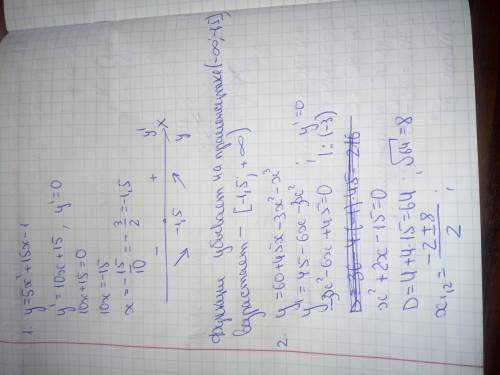 1. y=5x²+15x-1
y'=10x+15, y'=0
10x+15=0
10x=-15
x=-15/10=-3/2=-1,5
- + y'
-1,5 x
↘ ↗ y
Функция убывает на промежутке (-∞;-1,5]
возрастает - [-1,5; +∞)
2. y=60+45x-3x²-x³
y'=45-6x-3x² ; y'=0
-3x²-6x+45=0 |:(-3)
D=36-4·(-1)·45=216
x²+2x-15=0
D=4+4·15=64 ; √64=8
x₁,₂=(-2±8)/2 ;